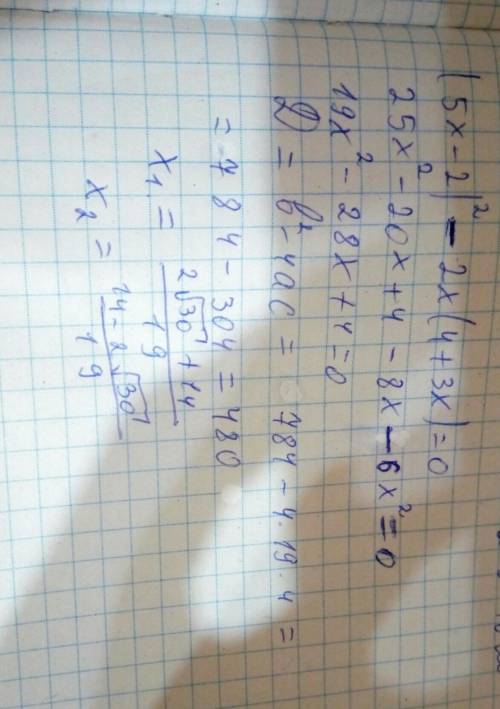 (5x-2)² - 2x(4+3x)=0
25x² - 20x + 4 - 8x - 6x² = 0
19x² - 28x + 4 = 0
D = b² - 4ac = 784 - 4·19·4 =
= 784 - 304 = 480
x₁ = (2√30 + 14)/19
x₂ = (14 - 2√30)/19